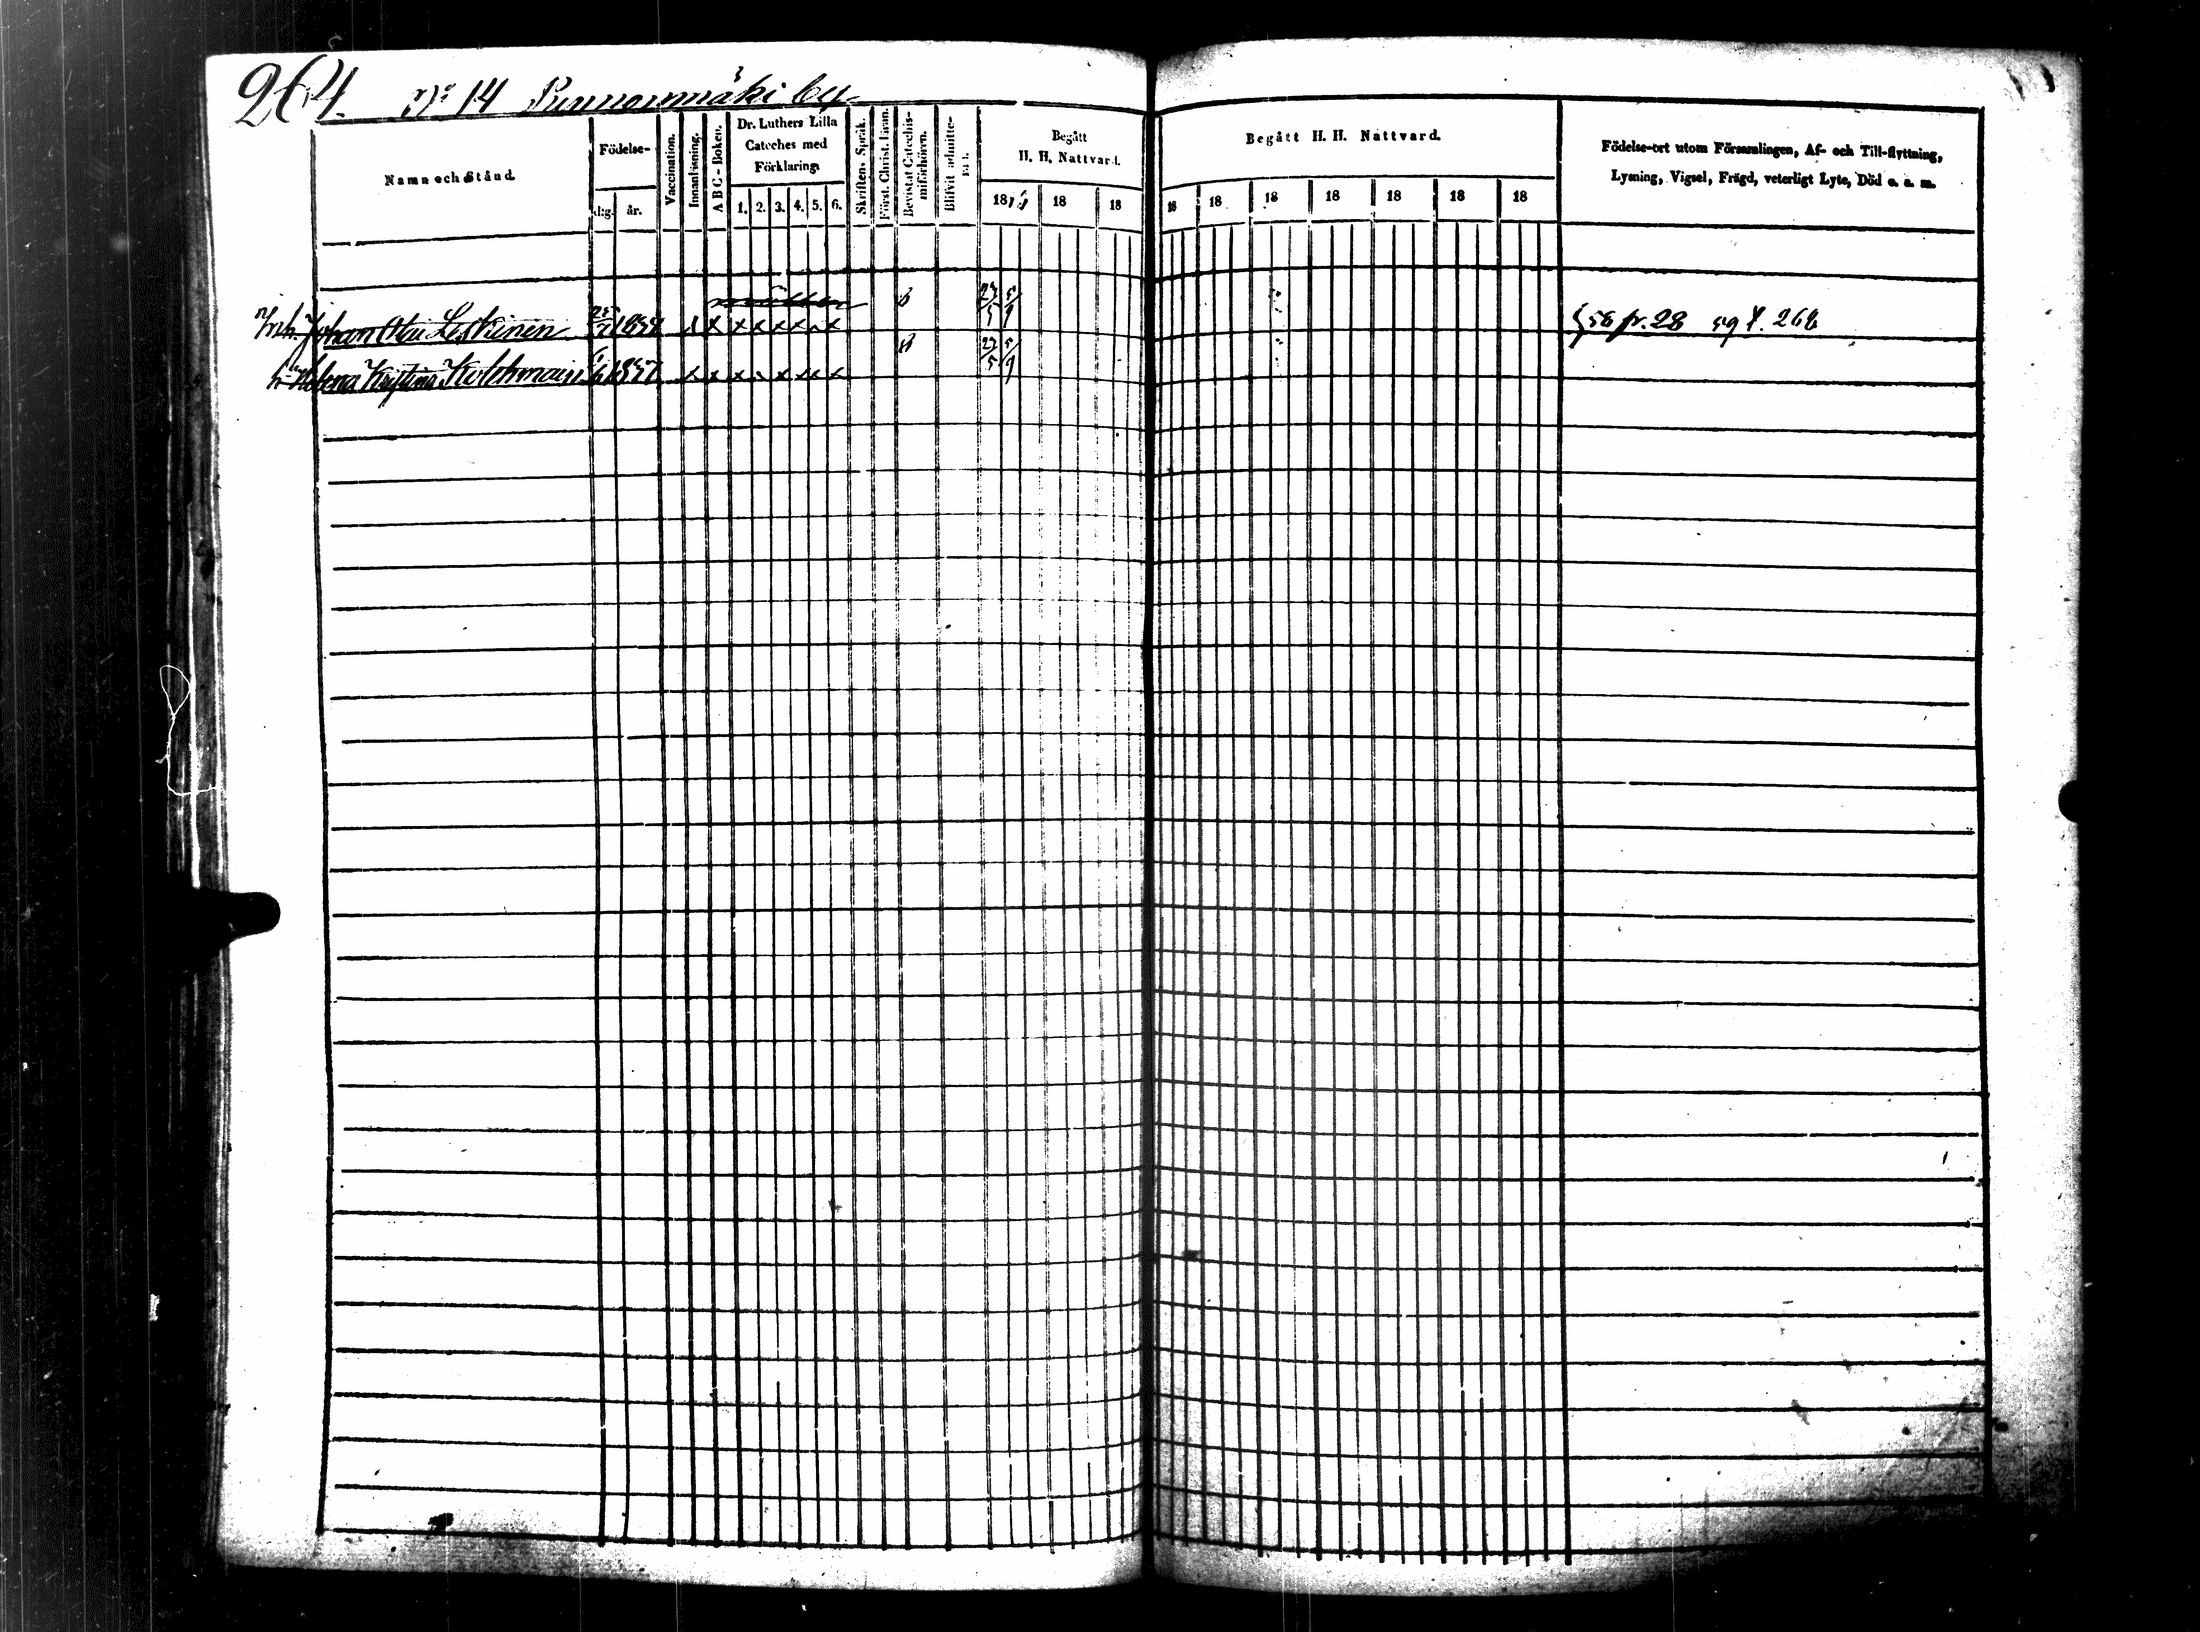 264. No 14 Punnonmäki by.
Namn och Stånd.
Födelse-
dag. år.
Vaccination.
Innanläsning.
ABC-Boken.
Dr. Luthers Lilla
Cateches med
Förklaring.
1. 2. 3. 4. 5. 6.
Skriftens Språk.
Först. Christ. Läran.
Bevistat Catechis-
miförhören.
Blifvit admitte-
rad.
Begått
H. H. Nattvard.
18 18 18
Begått H. H. Nattvard.
18 18 18 18 18 18 18
Födelse-ort utom Församlingen, Af- och Till-flyttning,
Lysning, Vigsel, Frägd, veterligt Lyte, Död o. a. m.
Johan Leskinen x x x x x x x 27/5
fr. 28 P. 268
h Helena x x x x x x x 27/5